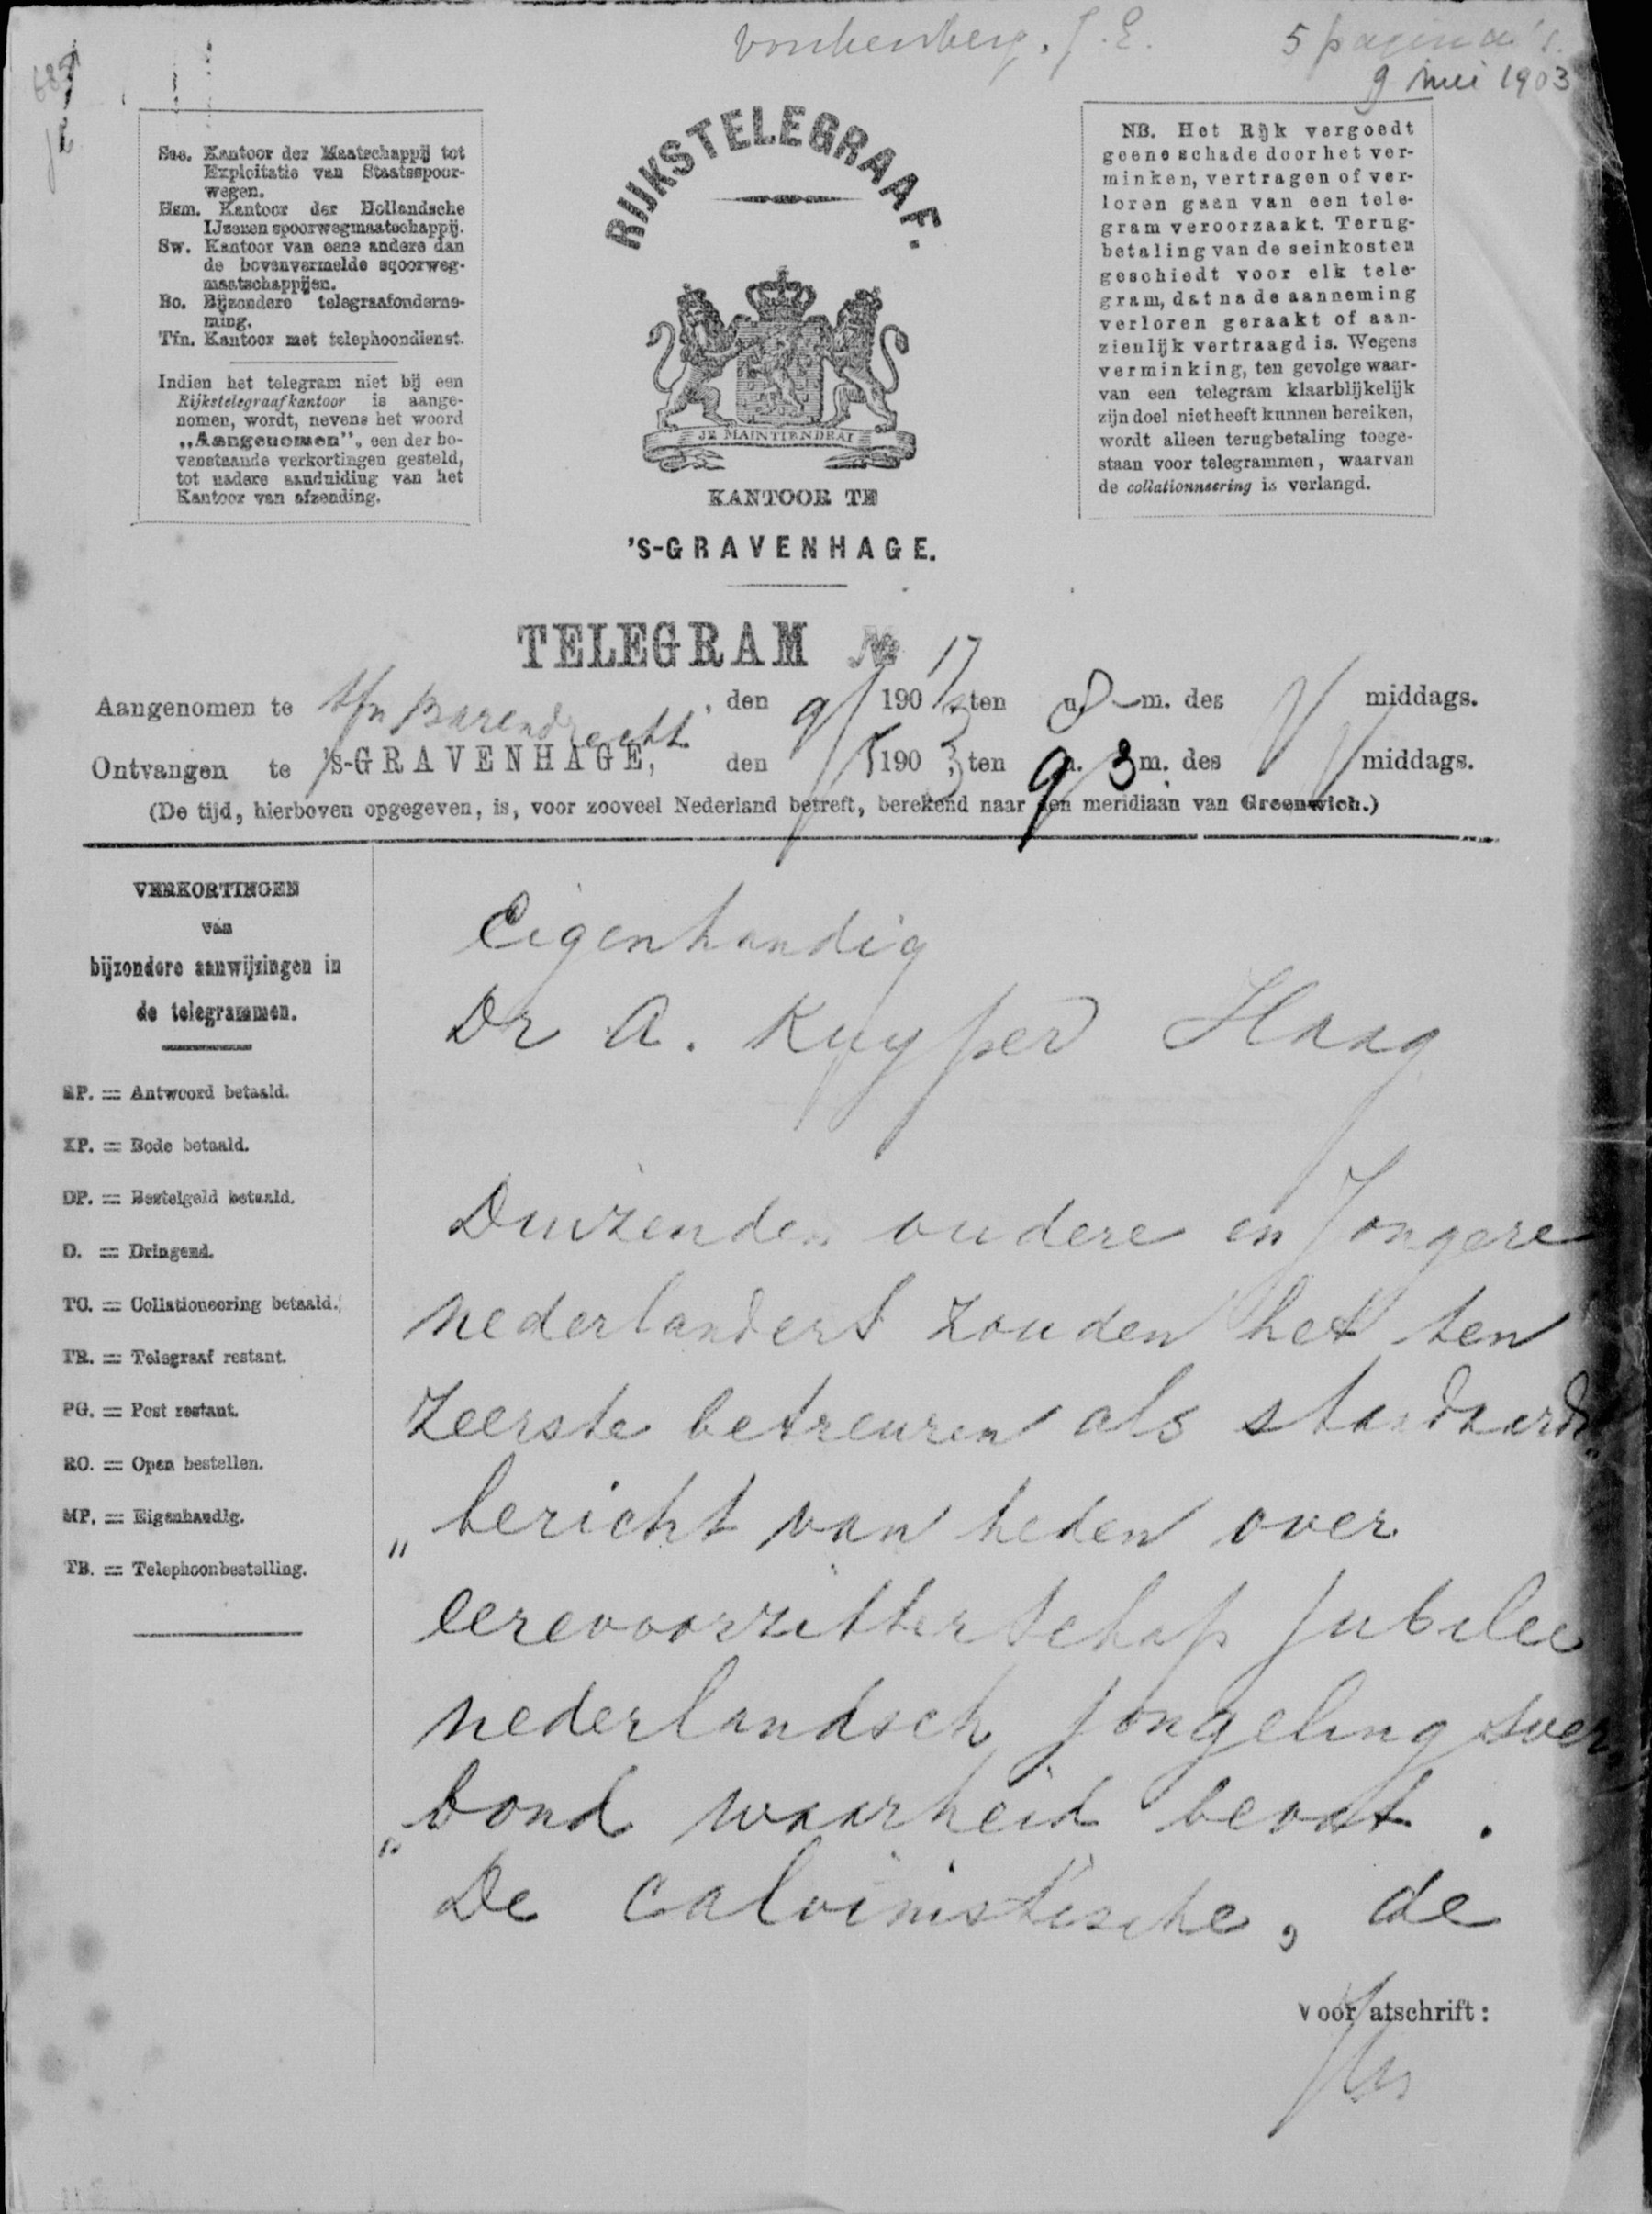 Vonkenberg, J. E. 5 pagina's.
9 mei 1903
Sss. Kantoor der Maatschappij tot
Exploitatie van Staatsspoor-
wegen.
Hsm. Kantoor der Hollandsche
IJzeren spoorwegmaatschappij.
Sw. Kantoor van eene andere dan
de bovenvermelde sqoorweg-
maatschappijen.
Bo. Bijzondere telegraafonderne-
ming.
Tfn. Kantoor met telephoondienst.
Indien het telegram niet bij een
Rijkstelegraafkantoor is aange-
nomen, wordt, nevens het woord
„Aangenomen", een der bo-
venstaande verkortingen gesteld,
tot nadere aanduiding van het
Kantoor van afzending.
RIJKSTELEGRAAF.
JE MAINTIENDRAI
KANTOOR TE
'S-GRAVENHAGE.
NB. Het Rijk vergoedt
geene schade door het ver-
minken, vertragen of ver-
loren gaan van een tele-
gram veroorzaakt. Terug-
betaling van de seinkosten
geschiedt voor elk tele-
gram, dat na de aanneming
verloren geraakt of aan-
zienlijk vertraagd is. Wegens
verminking, ten gevolge waar-
van een telegram klaarblijkelijk
zijn doel niet heeft kunnen bereiken,
wordt alleen terugbetaling toege-
staan voor telegrammen, waarvan
de collationneering is verlangd.
TELEGRAM № 17
Aangenomen te tfn Barendrecht, den 9/ 1903 ten 8 u. - m. des V middags.
Ontvangen te 's-GRAVENHAGE, den /5 1903 ten 9 u. 3 m. des V middags.
(De tijd, hierboven opgegeven, is, voor zooveel Nederland betreft, berekend naar den meridiaan van Greenwich.)
VERKORTINGEN
van
bijzondere aanwijzingen in
de telegrammen.
RP. = Antwoord betaald.
XP. = Bode betaald.
DP. = Bestelgeld betaald.
D. = Dringend.
TC. = Collationeering betaald.
TR. = Telegraaf restant.
PG. = Post restant.
RO. = Open bestellen.
MP. = Eigenhandig.
TB. = Telephoonbestelling.
Eigenhandig
Dr A. Kuyper Haag
Duizenden oudere en Jongere
nederlanders zouden het ten
zeerste betreuren als standaard„
„bericht van heden over
eerevoorzitterschap Jubilee
nederlandsch Jongelingsver„
„bond waarheid bevat.
De calvinistische, de
Voor afschrift: